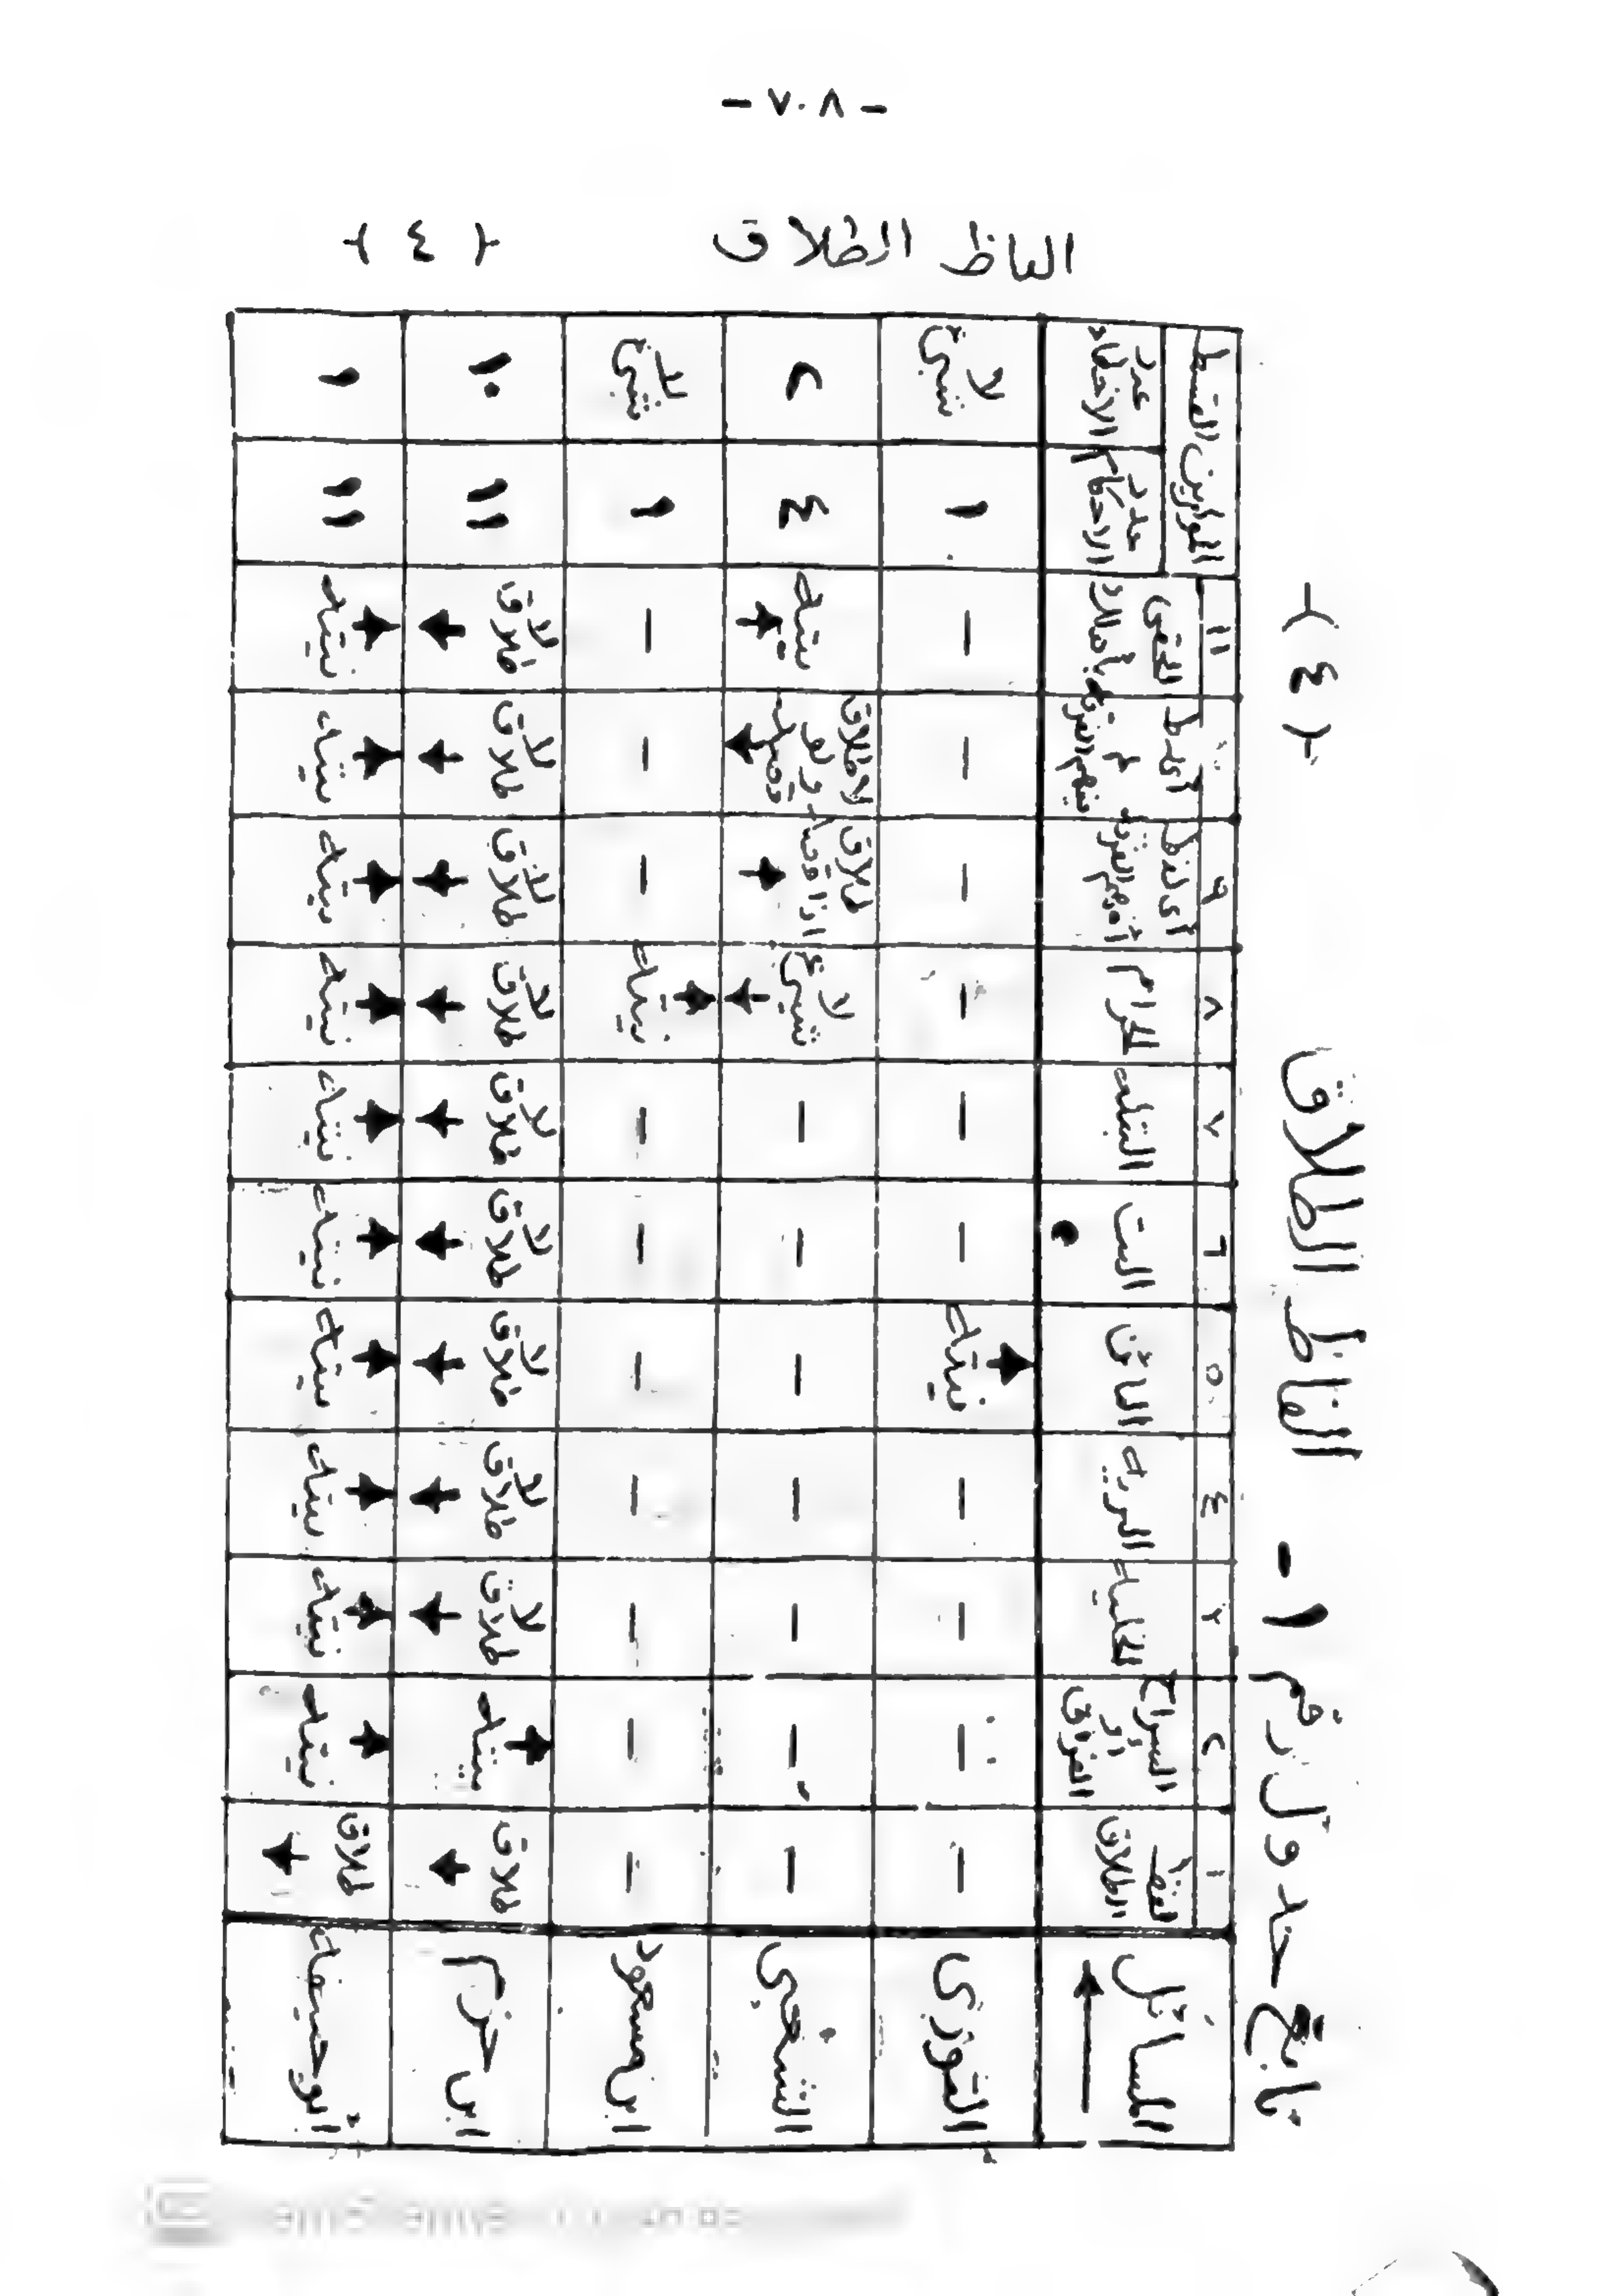 - ٧٠٨ -
الفاظ الطلاق { ٤ }
تابع جدول رقم ١ - الفاظ الطلاق { ٤ }
المسائل | ١ لفظ الطلاق | ٢ السراح أو الفراق | ٣ الخلية | ٤ البرية | ٥ البائن | ٦ البت | ٧ البتلة | ٨ الحرام | ٩ أى لفظ أفهم الفرقة | ١٠ أى لفظ لم يفهم الفرقة | ١١ الحقى بأهلك | الموازين القسط عدد الاحكام | عدد الاخطاء
الثورى | - | - | - | - | نيته | - | - | - | - | - | - | ١ | لا شىء
الشعبى | - | - | - | - | - | - | - | لا شىء | طلاق اذا قصد | لا طلاق ولو قصد | نيته | ٤ | ٢
ابن مسعود | - | - | - | - | - | - | - | نيته | - | - | - | ١ | لا شىء
ابن حزم | طلاق | نيته | لا طلاق | لا طلاق | لا طلاق | لا طلاق | لا طلاق | لا طلاق | لا طلاق | لا طلاق | لا طلاق | ١١ | ١٠
أبو حنيفة | طلاق | نيته | نيته | نيته | نيته | نيته | نيته | نيته | نيته | نيته | نيته | ١١ | ١